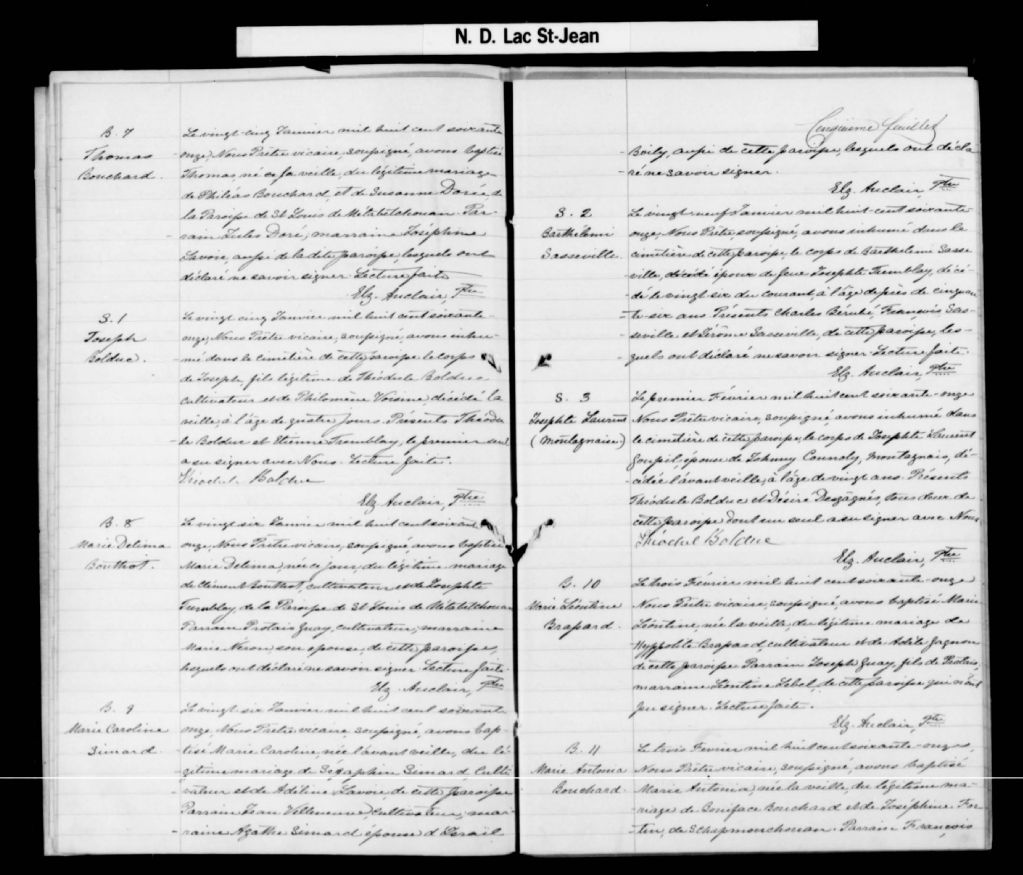 N. D. Lac St-Jean
B. 7
Thomas
Bouchard.
Le vingt-cinq Janvier mil huit cent soixante
onze, Nous Prêtre vicaire, soussigné, avons baptisé
Thomas, né ce la veille, du légitime mariage
de Philéas Bouchard, et de Susanne Doré, de
la Paroisse de St Louis de Métabetchouan. Par-
rain Jules Doré, marraine Joséphine
Lavoie, aussi de la dite paroisse, lesquels ont
déclaré ne savoir signer. Lecture faite
Elz. Auclair, Ptre
S. 1
Joseph
Bolduc.
Le vingt cinq Janvier mil huit cent soixante-
onze, Nous Prêtre vicaire, soussigné, avons inhu-
mé dans le cimetière de cette paroisse le corps
de Joseph, fils légitime de Théodule Bolduc,
cultivateur et de Philomène Voisine, décédé la
veille, à l'âge de quatre jours. Présents Théodu-
le Bolduc et Etienne Tremblay, le premier seul
a su signer avec Nous. Lecture faite.
Théodule Bolduc
Elz. Auclair, Ptre
B. 8
Marie Delima
Bouthot.
Le vingt six Janvier mil huit cent soixante
onze, Nous Prêtre vicaire, soussigné avons baptisé
Marie Delima, née ce jour, du légitime mariage
de Clément Bouthot, cultivateur, et de Josephte
Tremblay, de la Paroisse de St Louis de Métabetchouan
Parrain Protais Guay, cultivateur, marraine
Marie Néron son épouse, de cette paroisse,
lesquels ont déclaré ne savoir signer Lecture faite.
Elz. Auclair, Ptre
B. 9
Marie Caroline
Simard.
Le vingt six Janvier mil huit cent soixante
onze, Nous Prêtre vicaire, soussigné, avons bap-
tisé Marie Caroline, née l'avant veille, du lé-
gitime mariage de Séraphin Simard, Culti-
vateur et de Adéline Lavoie, de cette paroisse
Parrain Jean Villeneuve, cultivateur, mar-
raine Agathe Simard épouse d'Israil
Cinquième feuillet
Boily, aussi de cette paroisse, lesquels ont décla-
ré ne savoir signer.
Elz. Auclair, Ptre
S. 2
Barthélemi
Sasseville.
Le vingt neuf Janvier mil huit-cent soixante
onze, Nous Prêtre, soussigné, avons inhumé dans le
cimetière de cette paroisse, le corps de Barthelemi Sasse-
ville, décédé époux de feue Josephte Tremblay, décé-
dé le vingt six du courant, à l'âge de près de cinquan-
te-six ans Présents Charles Bérubé, François Sas-
seville et Jérôme Sasseville, de cette paroisse, les-
quels ont déclaré ne savoir signer Lecture faite.
Elz. Auclair, Ptre
S. 3
Josephte Laurent
(Montagnaise)
Le premier Février mil huit cent soixante-onze
Nous Prêtre vicaire, soussigné, avons inhumé dans
le cimetière de cette paroisse, le corps de Josephte Laurent
Goupil, épouse de Johnny Connoly, Montagnais, dé-
cédée l'avant veille, à l'âge de vingt ans. Présents
Théodule Bolduc et Désiré Desgagnés, tous deux de
cette paroisse dont un seul a su signer avec Nous
Théodul Bolduc
Elz. Auclair, Ptre
B. 10
Marie Léontine
Brassard.
Le trois Février mil huit cent soixante-onze
Nous Prêtre vicaire, soussigné, avons baptisé Marie
Léontine, née la veille, du légitime mariage de
Hyppolite Brassard, cultivateur et de Adèle Gagnon
de cette paroisse Parrain Joseph Guay, fils de Protais,
marraine Léontine Lebel, de cette paroisse qui n'ont
pu signer. Lecture faite.
Elz. Auclair, Ptre
B. 11
Marie Antonia
Bouchard.
Le trois Février mil huit cent soixante-onze,
Nous Prêtre vicaire, soussigné, avons baptisé
Marie Antonia, née la veille, du légitime ma-
riage de Boniface Bouchard et de Joséphine For-
tin, de Parrain François